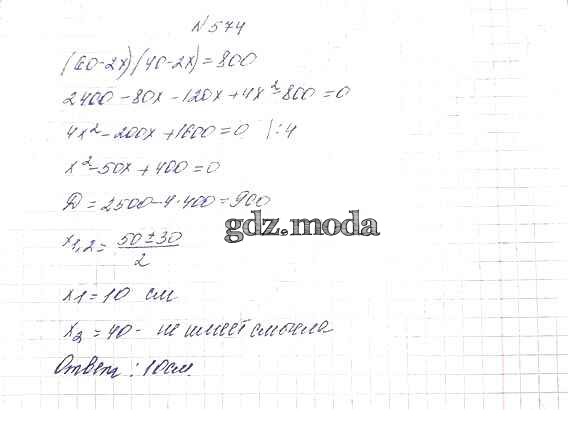 N 574
(60-2x)(40-2x)=800
2400-80x-120x+4x²-800=0
4x²-200x+1600=0 |:4
x²-50x+400=0
D=2500-4·400=900
gdz.moda
x1,2=50±30/2
x1=10 см
x2=40- не имеет смысла
Ответ: 10см.